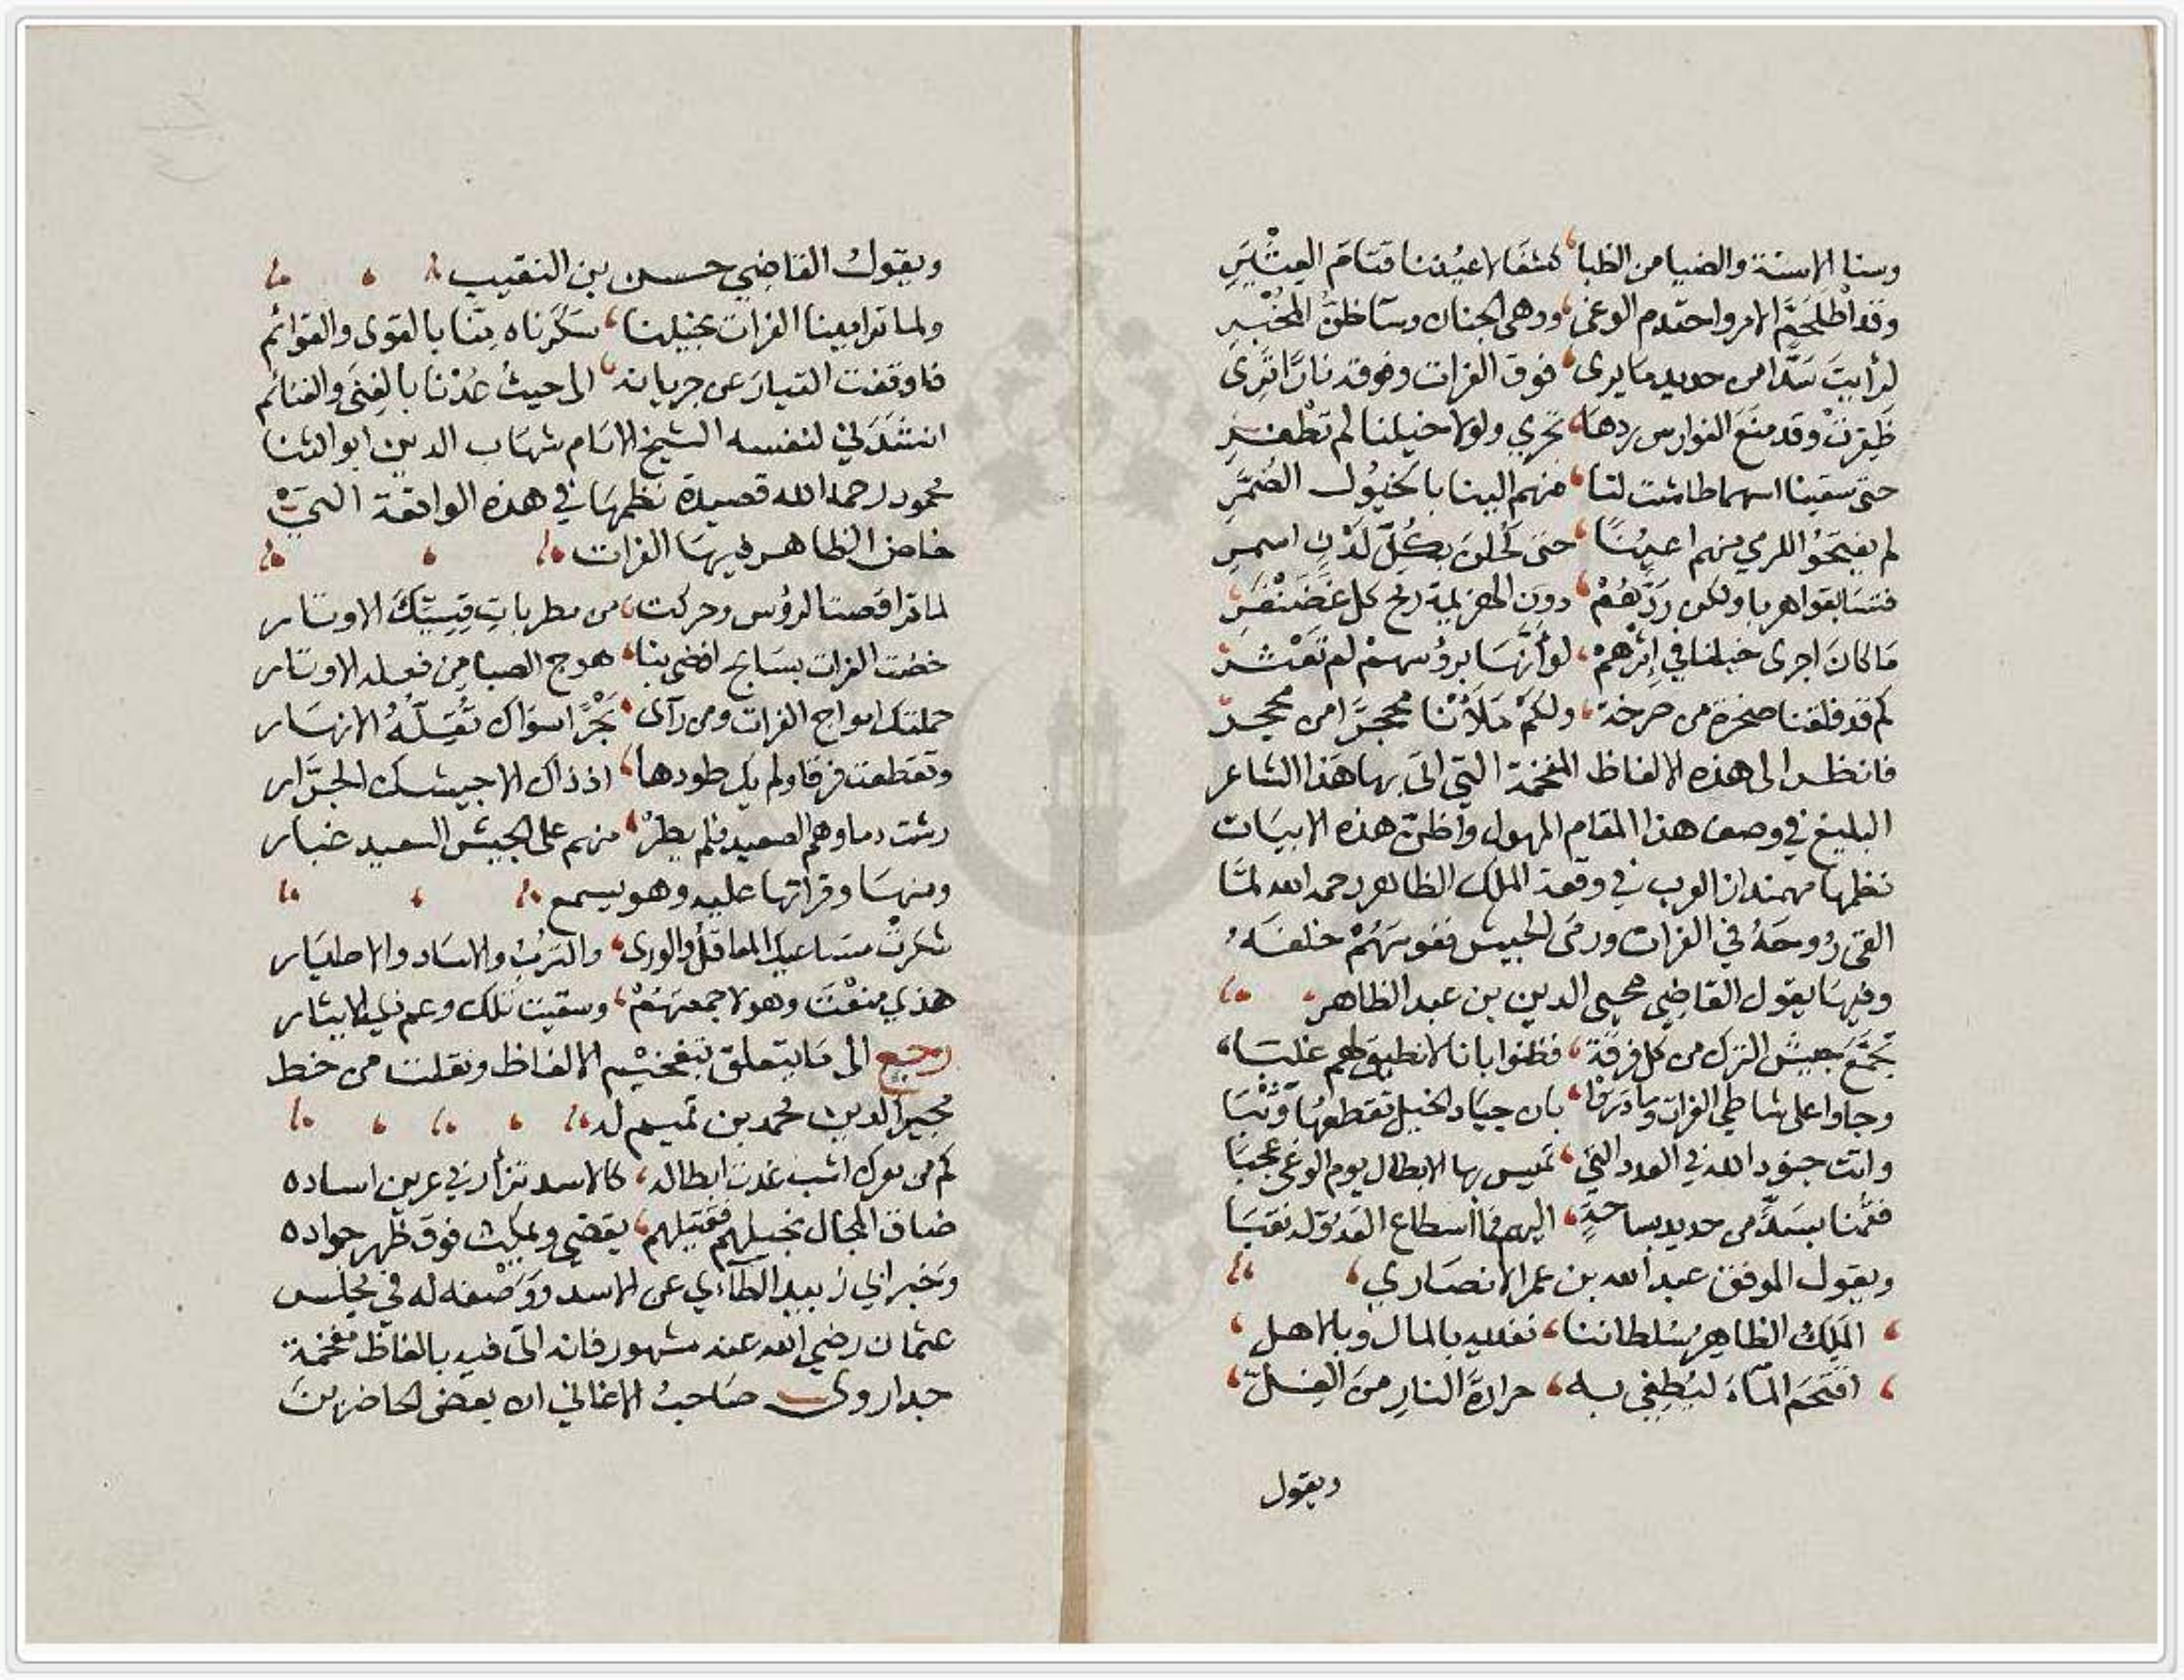 وسنا الاسنة والضيا من الظبا، كشفا لاعيننا قتام العثير
وقد اطلخم الامر واحتدم الوغى، ووهى الجنان وسآ ظن المخبر
لرأيت سدا من حديد ما يرى، فوق الفرات وفوقه نارا ترى
ظفرت وقد منع الفوارس ردها، تجري ولولا خيلنا لم تظفر
حتى سقينا اسهما طاشت لنا، منهم الينا بالخيول الضمر
لم يفتحوا للرمي منهم اعينا، حتى كحلن بكل لدن اسمر
فتسابقوا هربا ولكن ردهم، دون الهزيمة رمح كل غضنفر
ما كان اجرى خيلنا في اثرهم، لو أنها برؤسهم لم تعثر
كم قد فلقنا صخرة من صرخة، ولكم ملأنا محجرا من محجر
فانظر الى هذه الالفاظ المفخمة التي اتى بها هذا الشاعر
البليغ في وصف هذا المقام المهول واظن هذه الابيات
نظمها مهمندار العرب في وقعة الملك الظاهر رحمه الله لما
القى روحه في الفرات ورمى الجيش نفوسهم خلفه،
وفيها يقول القاضي محيى الدين بن عبد الظاهر،
تجمع جيش الترك من كل فرقة، فظنوا بانا لا نطيق لهم غلبا،
وجاوا على شاطي الفرات وما دروا، بان جياد الخيل تقطعها وثبا
واتت جنود الله في العدد التي، تميس بها الابطال يوم الوغى عجبا
فقمنا بسد من حديد بساحة، اليهم فما اسطاع العدو له نقبا
ويقول الموفق عبد الله بن عمر الانصاري،
، الملك الظاهر سلطاننا، نفديه بالمال وبالاهل،
، اقتحم المآء ليطفي به، حرارة النار من الغل،
ويقول
ويقول القاضي حسن بن النقيب
ولما ترامينا الفرات بخيلنا، سكرناه منا بالقوى والقوائم
فاوقفت التيار عن جريانه، الى حيث عدنا بالغنى والغنائم
انشدني لنفسه الشيخ الامام شهاب الدين ابو الثنا
محمود رحمه الله قصيدة نظمها في هذه الواقعة التي
خاض الظاهر فيها الفرات
لما تراقصت الرؤس وحركت، من مطربات قسيك الاوتار
خضت الفرات بسابح اقضى بنا، هوج الصبا من فعله الاوتار
حملتك امواج الفرات ومن رآى، بحرا سواك تقله الانهار
وتقطعت فرقا ولم يك طودها، اذ ذاك الا جيشك الجرار
رشت دماوهم الصعيد فلم يطر، منهم على الجيش السعيد غبار
ومنها وقراتها عليه وهو يسمع
شكرت مساعيك المعاقل والورى، والترب والاساد والاطيار
هذي منعت وهولا جمعتهم، وسقيت تلك وعم ذي الايثار
رجع الى ما يتعلق بتفخيم الالفاظ ونقلت من خط
مجير الدين محمد بن تميم له
كم من معرك اشب غدت ابطاله، كالاسد تزأر في عرين اساده
ضاق المجال بخيلهم فقتيلهم، يقضي ويمكث فوق ظهر جواده
وخبر ابي زبيد الطآءي عن الاسد ووصفه له في مجلس
عثمان رضي الله عنه مشهور فانه اتى فيه بالفاظ مفخمة
جدا روى صاحب الاغاني ان بعض الحاضرين